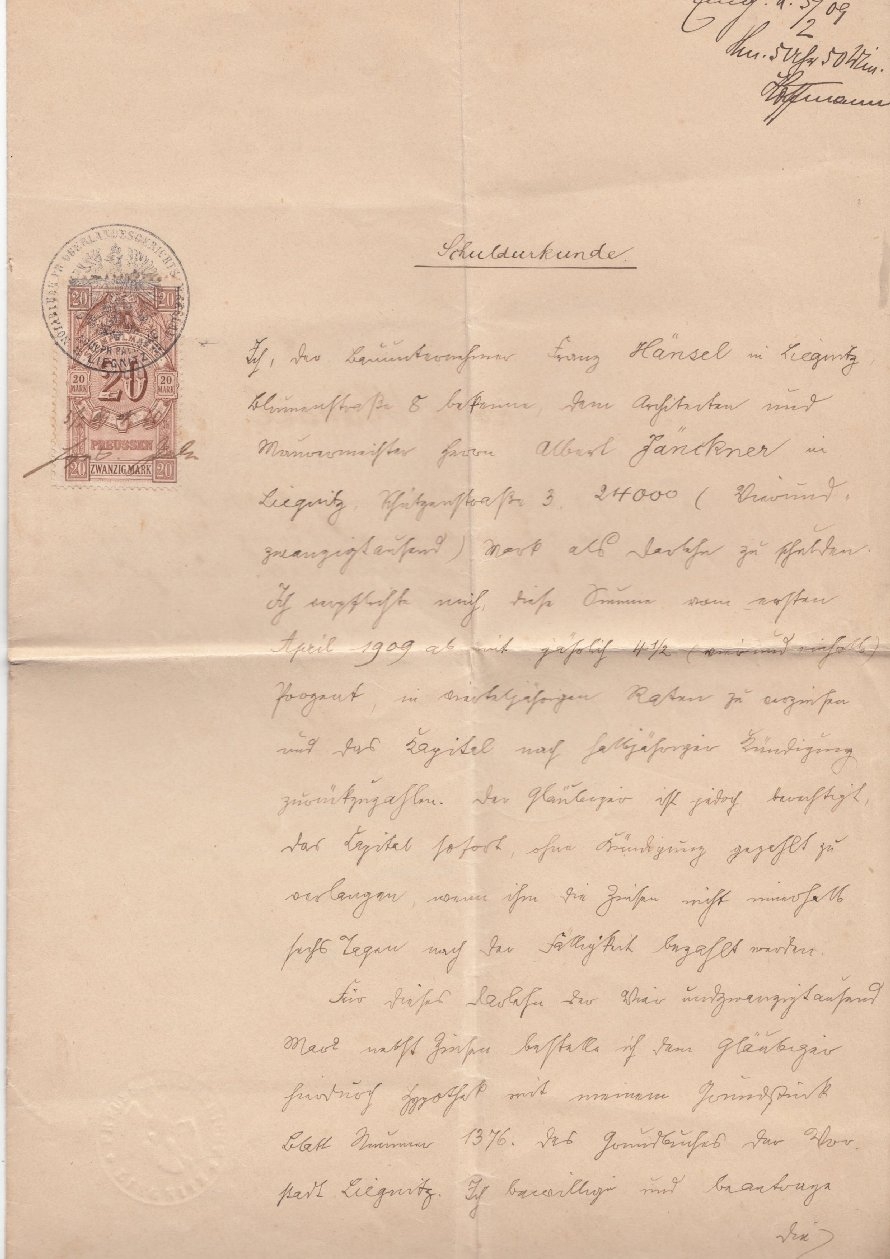 5/2 09
Nm. 5 Uhr 50 Min.
Hoffmann
Schuldurkunde.
NOTAR IM OBERLANDESGERICHTS-
LIEGNITZ
20 20
20 MARK 20 20 MARK
PREUSSEN
20 ZWANZIG MARK 20
Ich, der Bauunternehmer Franz Hänsel in Liegnitz,
Blumenstraße 8 bekenne, dem Architekten und
Maurermeister Herrn Albert Jänckner in
Liegnitz, Schützenstraße 3, 24000 (Vierund-
zwanzigtausend) Mark als Darlehn zu schulden.
Ich verpflichte mich, diese Summe vom ersten
April 1909 ab mit jährlich 4 1/2 (vierundeinhalb)
Prozent, in vierteljährigen Raten zu verzinsen
und das Kapital nach halbjähriger Kündigung
zurückzuzahlen. Der Gläubiger ist jedoch berechtigt,
das Kapital sofort, ohne Kündigung gezahlt zu
verlangen, wenn ihm die Zinsen nicht innerhalb
sechs Tagen nach der Fälligkeit bezahlt werden.
Für dieses Darlehn der Vierundzwanzigtausend
Mark nebst Zinsen bestelle ich dem Gläubiger
hierdurch Hypothek mit meinem Grundstück
Blatt Nummer 1376. des Grundbuches der Vor-
stadt Liegnitz. Ich bewillige und beantrage
die